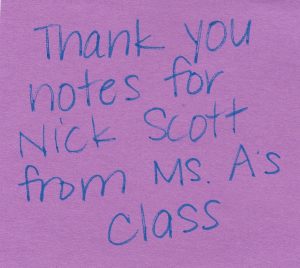 Thank you
notes for
Nick Scott
from Ms. A's
class